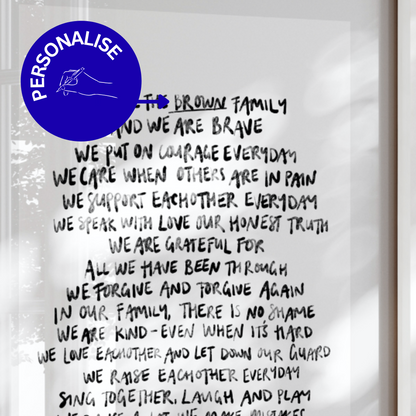 PERSONALISE
THE BROWN FAMILY
AND WE ARE BRAVE
WE PUT ON COURAGE EVERYDAY
WE CARE WHEN OTHERS ARE IN PAIN
WE SUPPORT EACHOTHER EVERYDAY
WE SPEAK WITH LOVE OUR HONEST TRUTH
WE ARE GRATEFUL FOR
ALL WE HAVE BEEN THROUGH
WE FORGIVE AND FORGIVE AGAIN
IN OUR FAMILY, THERE IS NO SHAME
WE ARE KIND - EVEN WHEN IT'S HARD
WE LOVE EACHOTHER AND LET DOWN OUR GUARD
WE RAISE EACHOTHER EVERYDAY
SING TOGETHER, LAUGH AND PLAY